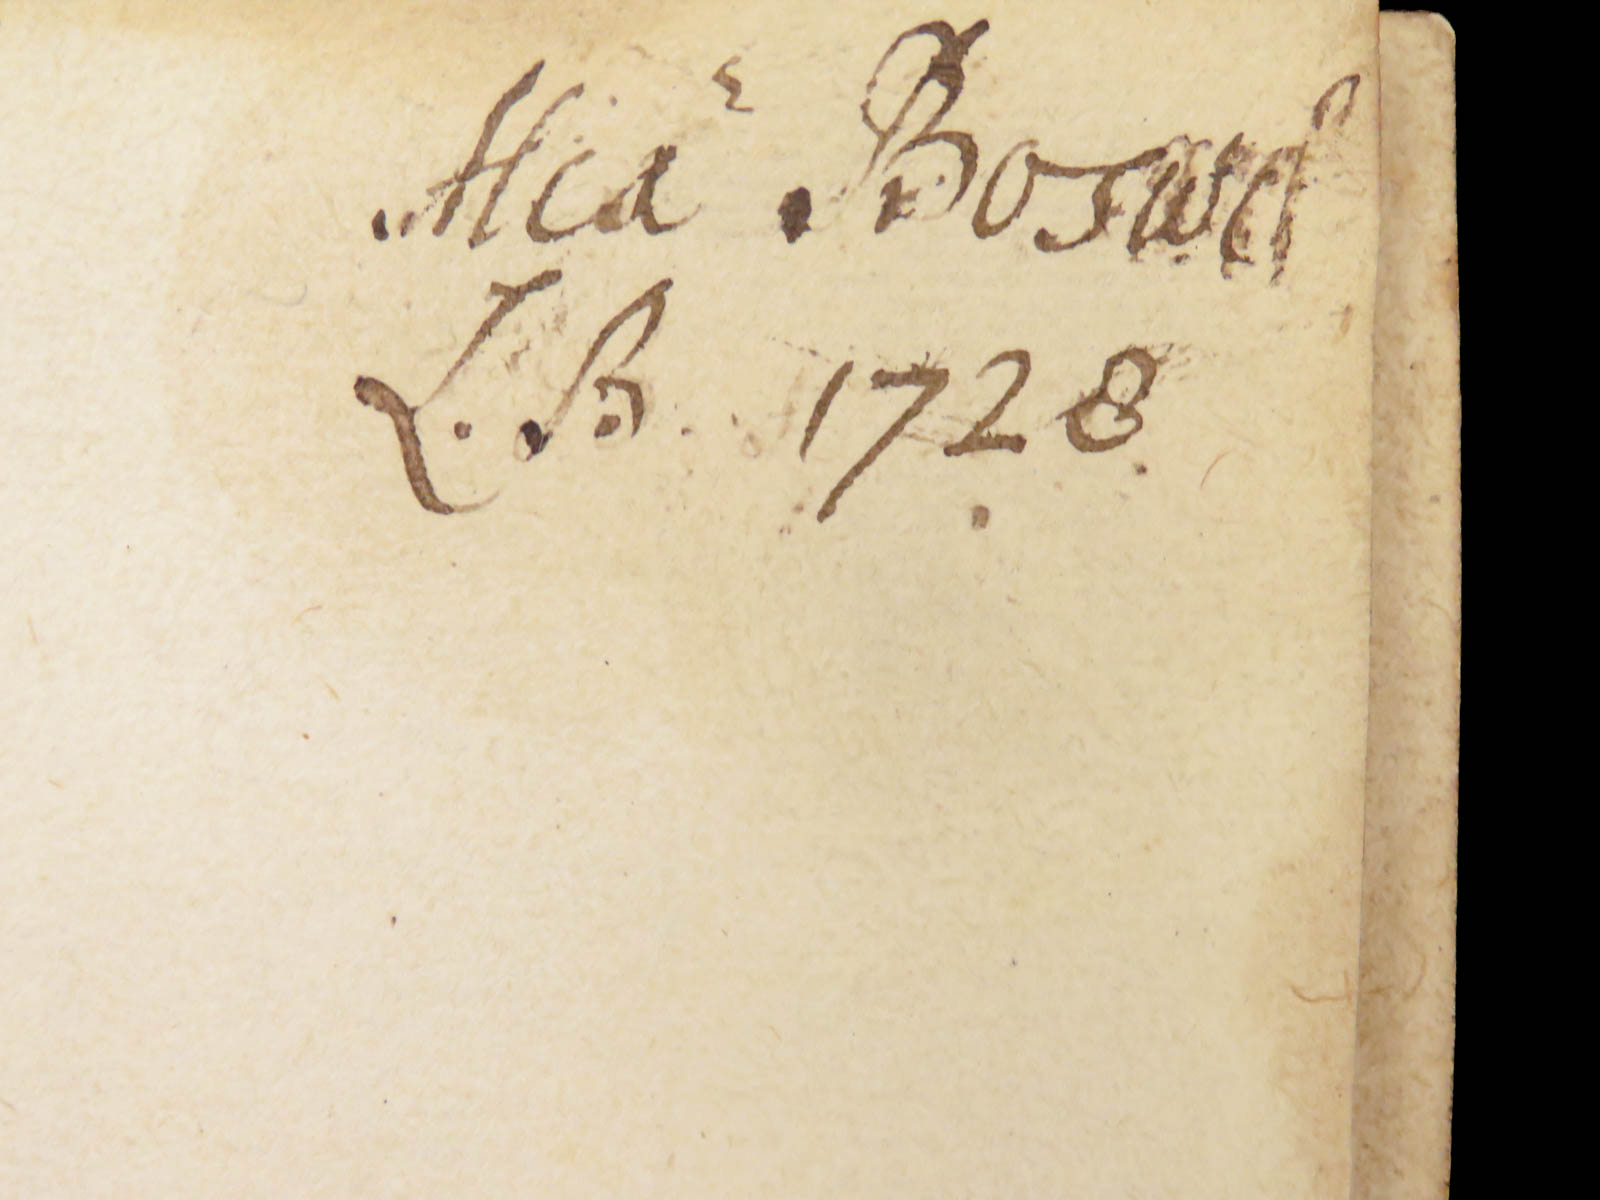 Alexʳ Boswel
L. B. 1728